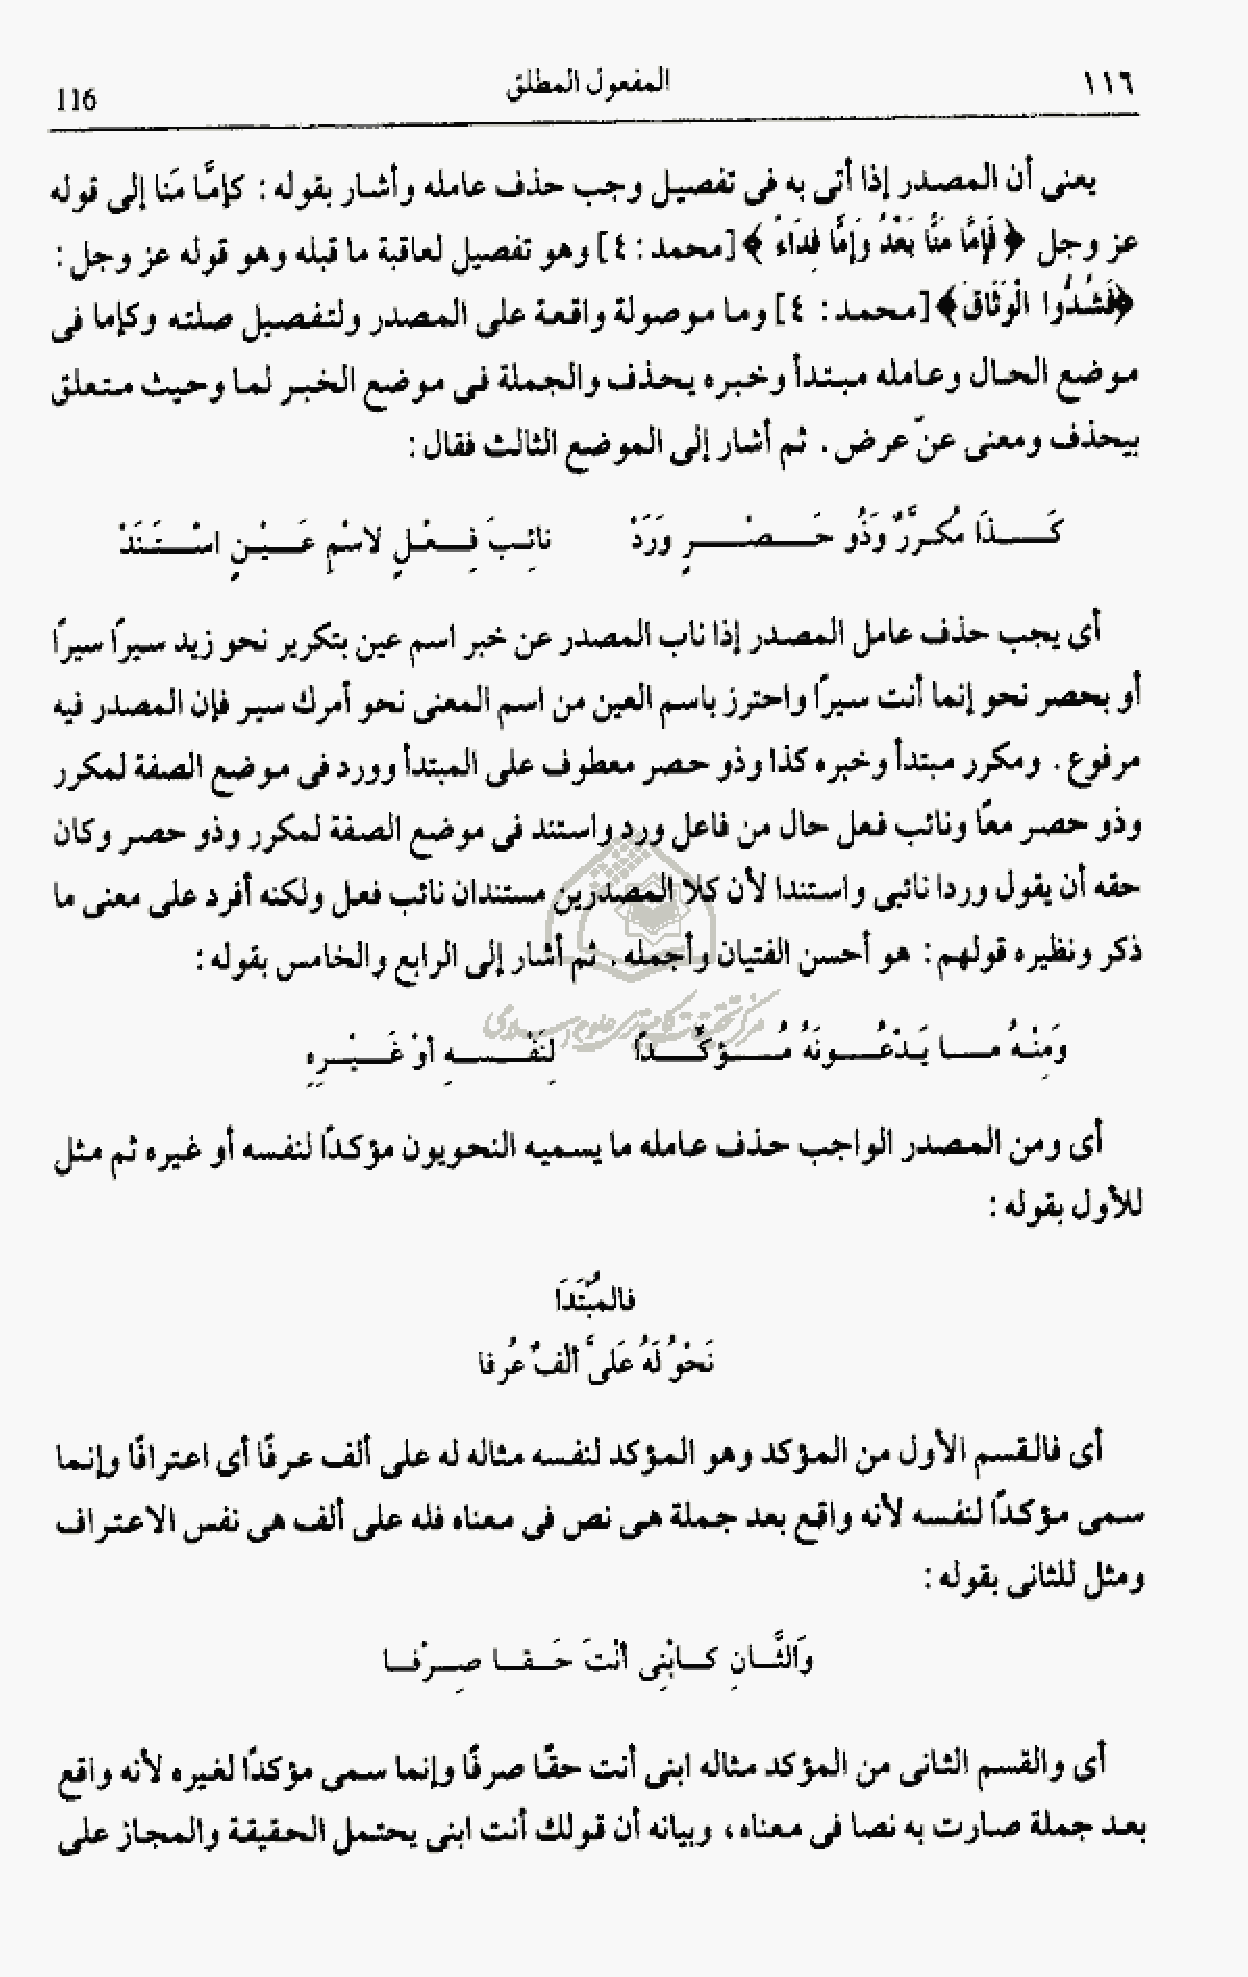 ١١٦
المفعول المطلق
116
يعنى أن المصدر إذا أتى به فى تفصيل وجب حذف عامله وأشار بقوله : كإمَّا مَنا إلى قوله
عز وجل ﴿ فَإِمَّا مَنًّا بَعْدُ وَإِمَّا فِدَاءً ﴾ [محمد : ٤] وهو تفصيل لعاقبة ما قبله وهو قوله عز وجل :
﴿فَشُدُّوا الْوَثَاقَ﴾ [محمد : ٤] وما موصولة واقعة على المصدر ولتفصيل صلته وكإما فى
موضع الحال وعامله مبتدأ وخبره يحذف والجملة فى موضع الخبر لما وحيث متعلق
بيحذف ومعنى عنّ عرض . ثم أشار إلى الموضع الثالث فقال :
كَذَا مُكرَّرٌ وَذُو حَصْرٍ وَرَدْ نائِبَ فِعْلٍ لاسْمِ عَيْنٍ اسْتَنَدْ
أى يجب حذف عامل المصدر إذا ناب المصدر عن خبر اسم عين بتكرير نحو زيد سيرًا سيرًا
أو بحصر نحو إنما أنت سيرًا واحترز باسم العين من اسم المعنى نحو أمرك سير فإن المصدر فيه
مرفوع . ومكرر مبتدأ وخبره كذا وذو حصر معطوف على المبتدأ وورد فى موضع الصفة لمكرر
وذو حصر معًا ونائب فعل حال من فاعل ورد واستند فى موضع الصفة لمكرر وذو حصر وكان
حقه أن يقول وردا نائبى واستندا لأن كلا المصدرين مستندان نائب فعل ولكنه أفرد على معنى ما
ذكر ونظيره قولهم : هو أحسن الفتيان وأجمله . ثم أشار إلى الرابع والخامس بقوله :
وَمِنْهُ مَا يَدْعُونَهُ مُؤكِّدًا لِنَفْسِهِ أوْ غَيْرِهِ
أى ومن المصدر الواجب حذف عامله ما يسميه النحويون مؤكدًا لنفسه أو غيره ثم مثل
للأول بقوله :
فالمُبْتَدَا
نَحْوُ لَهُ عَلَىَّ ألْفٌ عُرفا
أى فالقسم الأول من المؤكد وهو المؤكد لنفسه مثاله له على ألف عرفًا أى اعترافًا وإنما
سمى مؤكدًا لنفسه لأنه واقع بعد جملة هى نص فى معناه فله على ألف هى نفس الاعتراف
ومثل للثانى بقوله :
وَالثَّانِ كابْنِى أنْتَ حَقا صِرْفا
أى والقسم الثانى من المؤكد مثاله ابنى أنت حقًا صرفًا وإنما سمى مؤكدًا لغيره لأنه واقع
بعد جملة صارت به نصا فى معناه ، وبيانه أن قولك أنت ابنى يحتمل الحقيقة والمجاز على